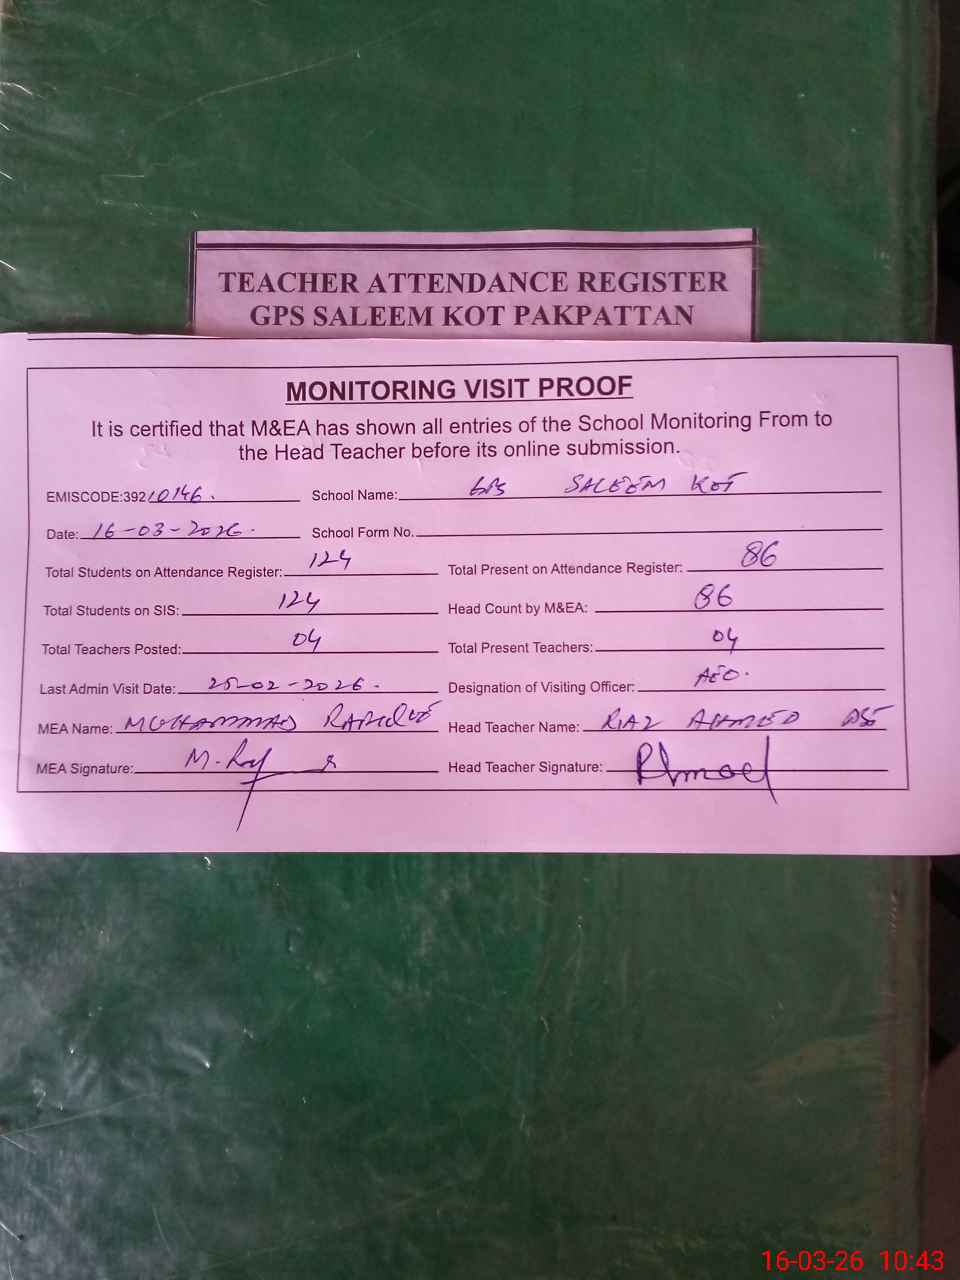 TEACHER ATTENDANCE REGISTER
GPS SALEEM KOT PAKPATTAN
MONITORING VISIT PROOF
It is certified that M&EA has shown all entries of the School Monitoring From to
the Head Teacher before its online submission.
EMISCODE:39210146. School Name: GPS SALEEM KOT
Date: 16-03-2026. School Form No.
Total Students on Attendance Register: 124 Total Present on Attendance Register: 86
Total Students on SIS: 124 Head Count by M&EA: 86
Total Teachers Posted: 04 Total Present Teachers: 04
Last Admin Visit Date: 25-02-2026. Designation of Visiting Officer: AEO.
MEA Name: MUHAMMAD Head Teacher Name: RIAZ AHMED
MEA Signature: M. Head Teacher Signature: RAhmad
16-03-26 10:43